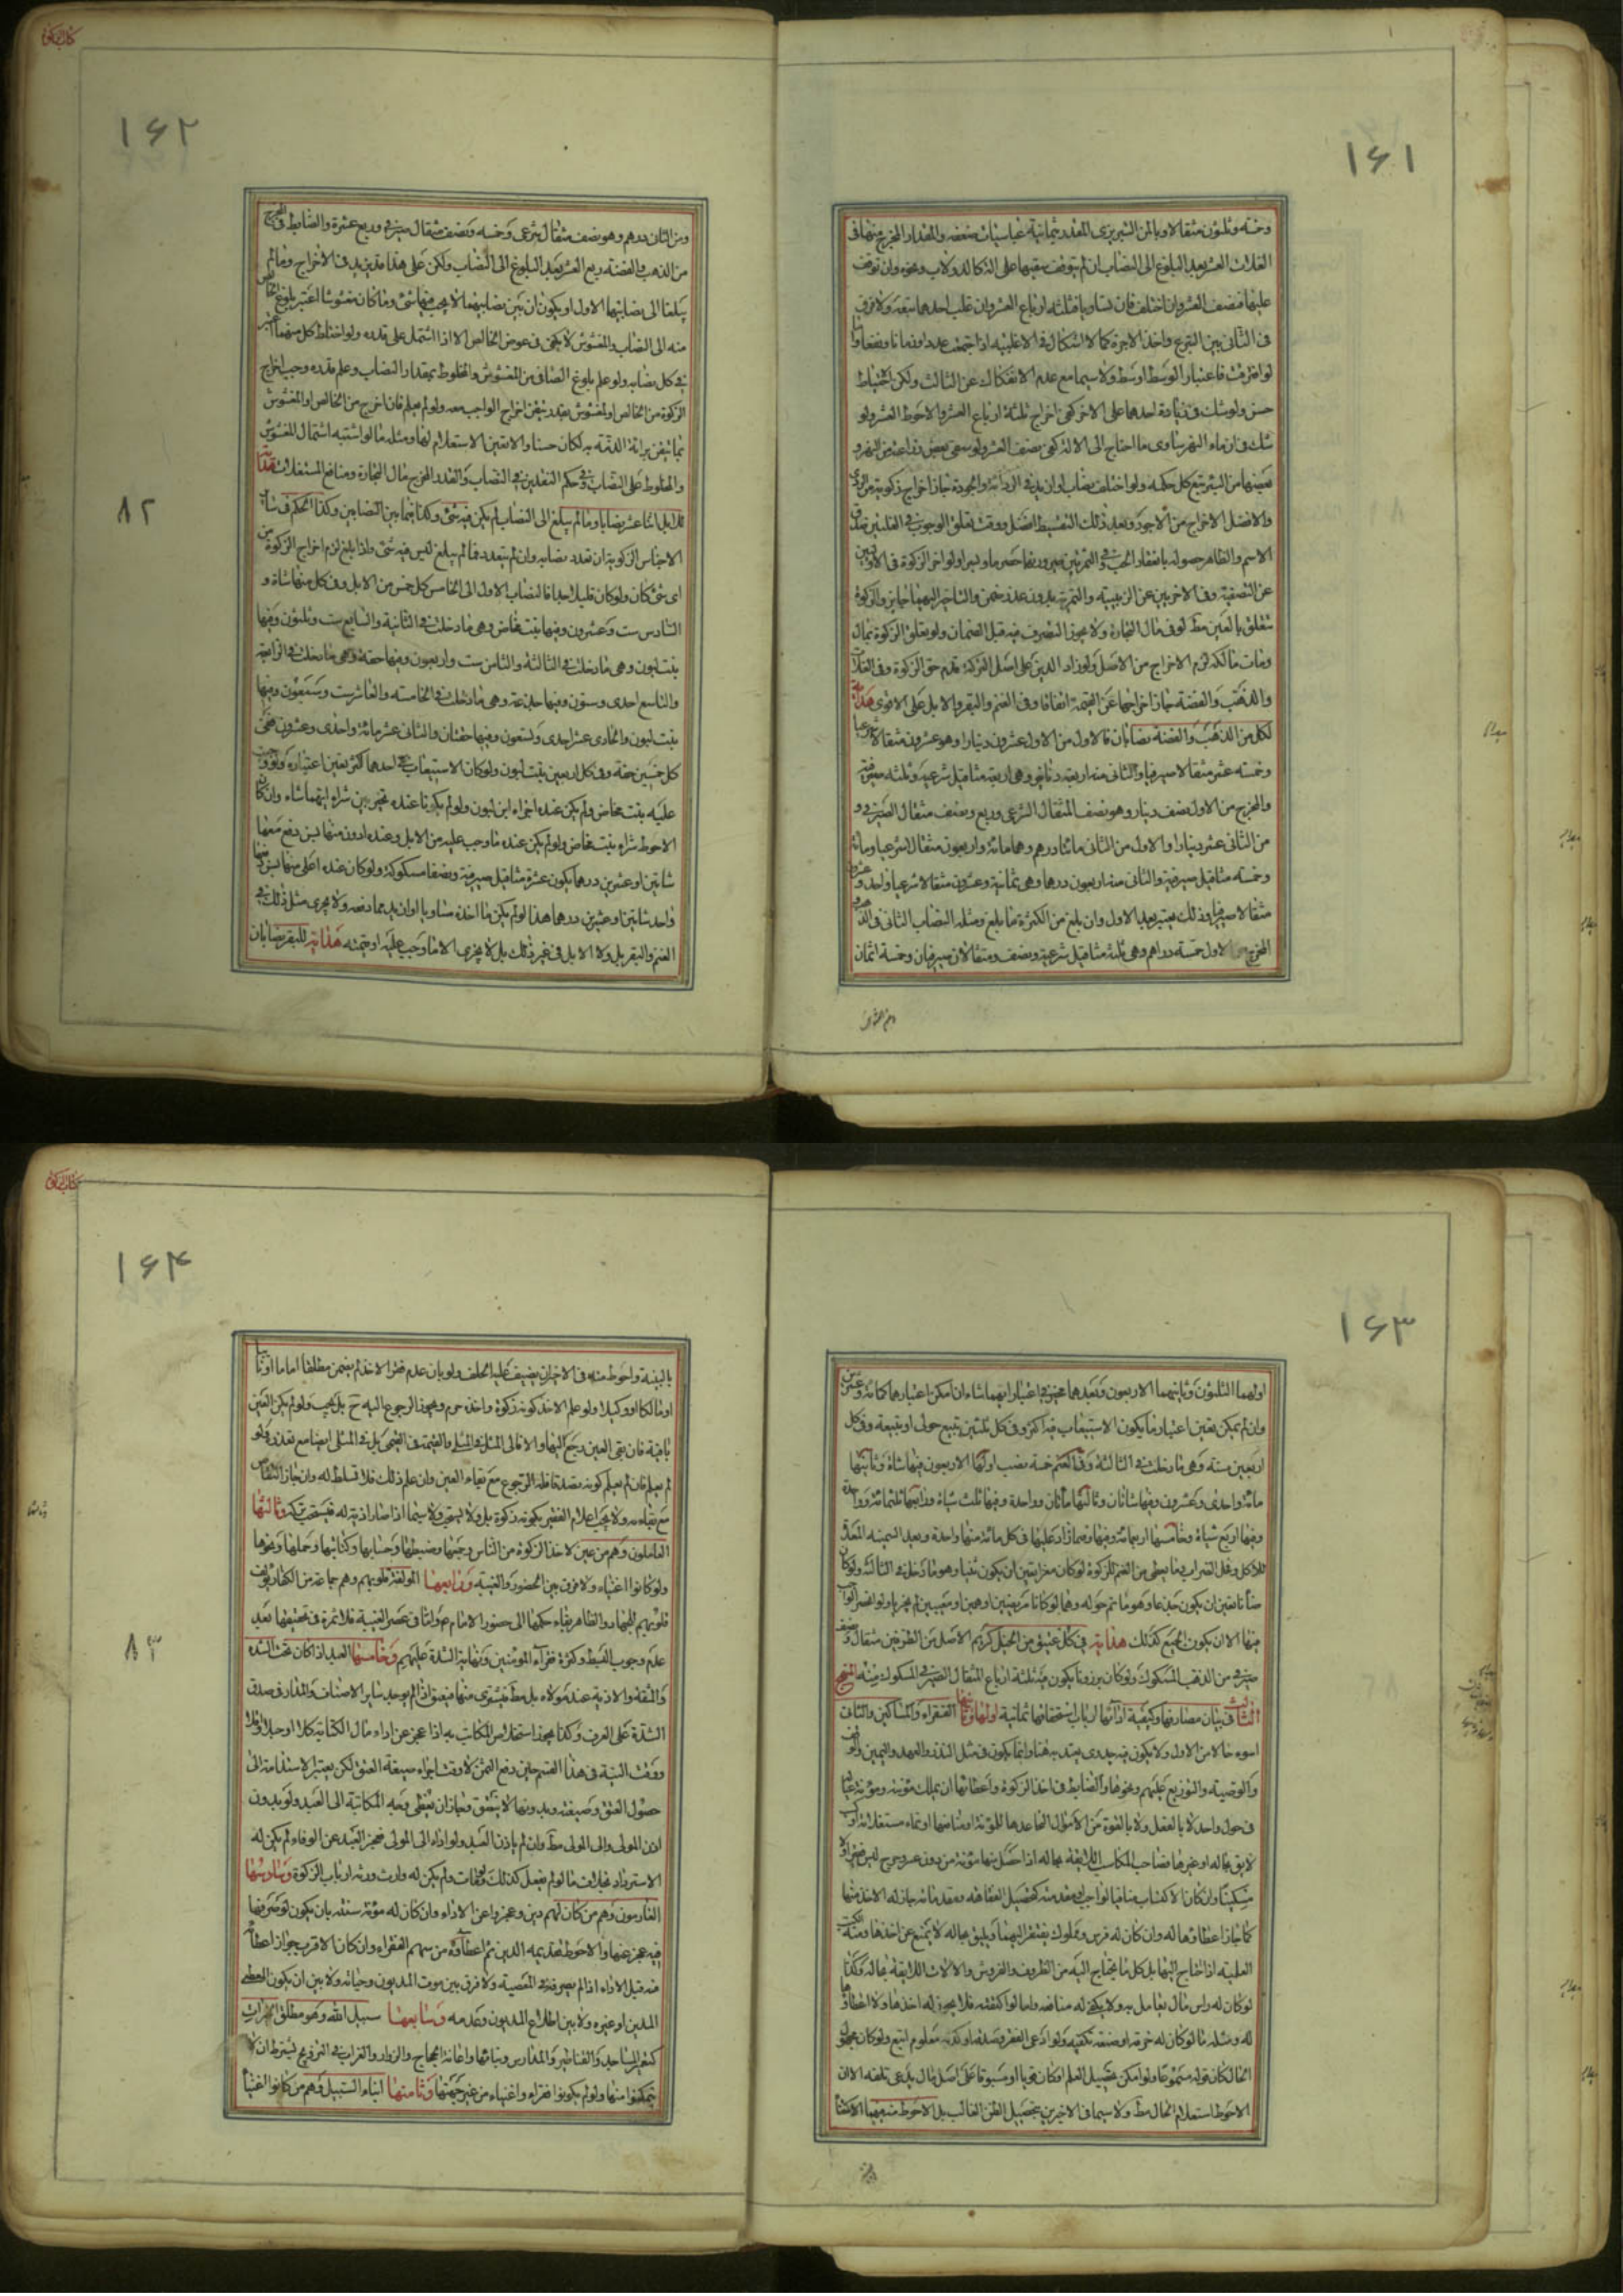 ۱۶۱
وخمسة وثلثون مثقالا وبالمن التبريزى المقدر بثمانية عباسيات ضعفه والمقدار المخرج منها فى
الغلات العشر بعد البلوغ الى النصاب ان لم يتوقف سقيها على الة كالدولاب ونحوه وان توقف
عليها فنصف العشر وان اختلف فان تساويا فثلثة ارباع العشر وان غلب احدهما يتبعه ولا فرق
فى الثانى بين التبرع واخذ الاجرة كما لا اشكال فى الاغلبية اذا اجتمعت عددا وزمانا ونفعا واما
لو افترقت فاعتبار الوسط اوسط ولا سيما مع عدم الانفكاك عن الثالث ولكن الاحتياط
حسن ولو شك فى زيادة احدهما على الاخر كفى اخراج ثلثة ارباع العشر والاحوط العشر ولو
شك فى ان ماء النهر يساوى ما احتاج الى الالة كفى نصف العشر ولو سقى بعض زراعته من النهر و
بعضها من البئر يتبع كل حكمه ولو اختلف نصاب او ازيد فى الرداءة والجودة جاز اخراج زكوته من الردى
والافضل الاخراج من الاجود وبعد ذلك التقسيط افضل ووقت تعلق الوجوب فى الغلتين صدق
الاسم والظاهر حصوله بانعقاد الحب وفى الثمرتين صيرورتهما حصرما وبسرا ولو اخر الزكوة فى الاولين
عن التصفية وفى الاخريين عن الزبيبية والتمرية بدون عذر ضمن والتاخير اليهما جايز والزكوة
تتعلق بالعين مط لو فى مال التجارة ولا يجوز التصرف فيه قبل الضمان ولو تعلق الزكوة بمال
ومات مالكه لزم الاخراج من الاصل ولو زاد الدين على اصل التركة يقدم حق الزكوة وفى الغلات
والذهب والفضة جاز اخراجها عن القيمة اتفاقا وفى الغنم والبقر والابل على الاقوى هداية
لكل من الذهب والفضة نصابان فالاول من الاول عشرون دينارا وهو عشرون مثقالا شرعيا
وخمسة عشر مثقالا صيرفيا والثانى منه اربعة دنانير وهى اربعة مثاقيل شرعية وثلثة صيرفية
والمخرج من الاول نصف دينار وهو نصف المثقال الشرعى وربع ونصف مثقال الصيرفى و
من الثانى عشر دينار والاول من الثانى مائتا درهم وهما مائة واربعون مثقالا شرعيا ومائة
وخمسة مثاقيل صيرفية والثانى منه اربعون درهما وهى ثمانية وعشرون مثقالا شرعيا واحد وعشرون
مثقالا صيرفيا وذلك يعتبر بعد الاول وان بلغ من الكثرة ما بلغ ومثله النصاب الثانى فى الذهب و
المخرج من الاول خمسة دراهم وهى ثلثة مثاقيل شرعية ونصف ومثقالان صيرفيان وخمسة اثمان
۱۶۲
۸۲
ومن الثان درهم وهو نصف مثقال شرعى وخمسه ونصف مثقال صيرفى وربع عشرة والضابط فى المخرج
من الذهب والفضة ربع العشر بعد البلوغ الى النصاب ولكن على هذا قد يزيد فى الاخراج وما لم
يبلغا الى نصابيهما الاول او يكون ان بين نصابيهما لا يجب فيهما شئ وما كان مغشوشا اعتبر بلوغ الخالص
منه الى النصاب والمغشوش لا يكفى فى عوض الخالص الا اذا اشتمل على قدره ولو اختلط كل منهما اعتبر
فى كل نصابه ولو علم بلوغ الصافى من المغشوش والمخلوط بمقدار النصاب وعلم قدره وجب اخراج
الزكوة من الخالص او المغشوش بقدر تيقن اخراج الواجب معه ولو لم يعلم فان اخرج من الخالص او المغشوش
بما تيقن براءة الذمة به لكان حسنا والا تعين الاستعلام لهما ومثله ما لو اشتبه اشتمال المغشوش
والمخلوط على النصاب وفى حكم النقدين فى النصاب والقدر المخرج مال التجارة ومنافع المستغلات هداية
للابل اثنا عشر نصابا وما لم يبلغ الى النصاب لم يكن فيه شئ وكذا فيما بين النصابين وكذا الحكم فى سائر
الاجناس الزكوية ان تعدد نصابه وان لم يتعدد فما لم يبلغ ليس فيه شئ واذا بلغ لزم اخراج الزكوة من
اى شئ كان ولو كان قليلا جدا فالنصاب الاول الى الخامس كل خمس من الابل وفى كل منها شاة و
السادس ست وعشرون وفيها بنت مخاض وهى ما دخلت فى الثانية والسابع ست وثلثون وفيها
بنت لبون وهى ما دخلت فى الثالثة والثامن ست واربعون وفيها حقة وهى ما دخلت فى الرابعة
والتاسع احدى وستون وفيها جذعة وهى ما دخلت فى الخامسة والعاشر ست وسبعون وفيها
بنتا لبون والحادى عشر احدى وتسعون وفيها حقتان والثانى عشر مائة واحدى وعشرون ففى
كل خمسين حقة وفى كل اربعين بنت لبون ولو كان الاستيعاب فى احدهما اكثر تعين اعتباره ولو وجب
عليه بنت مخاض ولم يكن عنده اجزاه ابن لبون ولو لم يكونا عنده تخير بين شراء ايهما شاء وان كان
الاحوط شراء بنت مخاض ولو لم يكن عنده ما وجب عليه من الابل وعنده ادون منها بسن دفع معها
شاتين او عشرين درهما يكون عشرة مثاقيل صيرفية ونصفا مسكوكة ولو كان عنده اعلى منها بسن دفعها
واخذ شاتين او عشرين درهما هذا لو لم يكن ما اخذه مساويا او ازيد مما دفعه ولا يجرى مثل ذلك فى
الغنم والبقر بل ولا الابل فى غير ذلك بل لا يجزى الا ما وجب عليه او قيمته هداية للبقر نصابان
۱۶۳
اولهما الثلثون وثانيهما الاربعون وبعدهما مخير فى اعتبار ايهما شاء ان امكن اعتبارهما كمائة وعشرين
وان لم يمكن تعين اعتبار ما يكون الاستيعاب فيه اكثر وفى كل ثلثين تبيع حولى او تبيعة وفى كل
اربعين مسنة وهى ما دخلت فى الثالثة وفى الغنم خمسة نصب اولها الاربعون فيها شاة وثانيها
مائة واحدى وعشرون وفيها شاتان وثالثها مأتان وواحدة وفيها ثلث شياة ورابعها ثلثمائة وواحدة
وفيها اربع شياة وخامسها اربعمائة وفيها وفيما زاد عليها فى كل مائة منها واحدة وبعد السمينة المعدة
للاكل وفحل الضراب وما يعطى من الغنم للزكوة لو كان معزا تعين ان يكون ثنيا وهو ما دخل فى الثالثة ولو كان
ضأنا تعين ان يكون جذعا وهو ما تم حوله وهما لو كانا مريضين او هرمين او معيبين لم يجزيا ولو انحصر الواجب
فيها الا ان يكون الجميع كذلك هداية فى كل عتيق من الخيل كريم الاصل من الطرفين مثقال ونصف
صيرفى من الذهب المسكوك ولو كان برذونا يكون فيه ثلثة ارباع المثقال الصيرفى المسكوك منه المنهج
الثالث فى بيان مصارفها وكيفية ادائها ارباب استحقاقها ثمانية اولها وثانيها الفقراء والمساكين والثانى
اسوء حالا من الاول ولا يكون فيه جدوى يعتد به هنا وانما يكون فى مثل النذر والعهد واليمين والوقف
والوصية والتوزيع عليهم ونحوها والضابط فى اخذ الزكوة واعطائها ان يملك مؤنته ومؤنة عياله
فى حول واحد لا بالفعل ولا بالقوة من الاموال المعاعدها للمؤنة او منافعها او نماء مستغلاته او كسب
لايق بحاله او غيرها فصاحب المكاسب اللائقة بحاله اذا حصل منها مؤنته من دون عسر وحرج ليس فقيرا ولا
مسكينا وان كان الاكتساب منافيا لواجب او مقدمته كتحصيل الفقاهة ومقدماته جاز له الاخذ منها
كما جاز اعطاؤها له وان كان له فرس ومملوك يفتقر اليهما ويليق بحاله لا يمنع عن اخذها ومثله الكتب
العلمية اذا احتاج اليها بل كل ما يحتاج اليه من الظروف والفروش والالات اللائقة بحاله وكذا
لو كان له راس مال يعامل به ولا يكفى له منافعه واما لو اكتفته فلا يجوز له اخذها ولا اعطاؤها
له ومثله ما لو كان له حرفة او صنعة تكفيه ولو ادعى الفقر وصدقه او كذبه معلوم اتبع ولو كان مجهول
الحال كان قوله مسموعا ولو امكن تحصيل العلم او كان قويا او مسبوقا على اصل مال يدعى تلفه الا ان
الاحوط استعلام الحال مط ولا سيما فى الاخيرين بتحصيل الظن الغالب بل الاحوط منه فيهما الاكتفاء
۱۶۴
۸۳
بالبينة واحوط منه فى الاخران يضيف عليه الحلف ولو بان عدم فقر الاخذ لم يضمن مطلقا اماما او نائبا
او مالكا او وكيلا ولو علم الاخذ كونه زكوة واخذ حرم ويجوز الرجوع اليه ح بل يجب ولو لم يكن العين
باقية فان بقى العين رجع اليها والا فالى المثل فى المثلى والقيمة فى القيمى بل فى المثلى ايضا مع تعذره ولو
لم يعلم فان لم يعلم كونه بصدقة فله الرجوع مع بقاء العين وان علم ذلك فلا تسلط له وان جاز التقاص
مع بقاءه ولا يجب اعلام الفقير بكونه زكوة بل ولا يستحب ولا سيما اذا صار اذية له فيستحب تركه وثالثها
العاملون وهم من عين لاخذ الزكوة من الناس وجمعها وضبطها وحسابها وكتابتها وحملها ونحوها
ولو كانوا اغنياء ولا فرق بين الحضور والغيبة ورابعها المؤلفة قلوبهم وهم جماعة من الكفار يؤلف
قلوبهم للجهاد والظاهر بقاء حكمها الى حضور الامام ع واما فى عصر الغيبة فلا ثمرة فى تحقيقها بعد
عدم وجوب البسط وكثرة فقراء المؤمنين ونهاية الشدة عليهم وخامسها العبد اذا كان تحت الشدة
والمشقة والاذية عند مولاه بل مط فيشترى منها فيعتق اذا لم يوجد ساير الاصناف والمدار فى صدق
الشدة على العرف وكذا يجوز استخلاص المكاتب به اذا عجز عن اداء مال الكتابة كلا او جلا او قلا
ووقت النية فى هذا القسم حين دفع الثمن لا وقت اجراء صيغة العتق لكن يعتبر الاستدامة الى
حصول العتق وصيغته وبدونها لا ينعتق وجاز ان يعطى وجه المكاتبة الى العبد ولو بدون
اذن المولى والى المولى مط وان لم ياذن العبد ولو اداه الى المولى فعجز العبد عن الوفاء لم يكن له
الاسترداد بخلاف ما لو لم يفعل كذلك ولو مات ولم يكن له وارث ورثه ارباب الزكوة وسادسها
الغارمون وهم من كان لهم دين وعجزوا عن الاداء وان كان له مؤنة سنته بان يكون لو صرفها
فيه عجز عنها والاحوط تقديمه الدين ثم اعطاؤه من سهم الفقراء وان كان الاقرب جواز اعطائه
منه قبل الاداء اذا لم يصرفه فى المعصية ولا فرق بين موت المديون وحياته ولا بين ان يكون المعطى
المدين او غيره ولا بين اطلاع المديون وعدمه وسابعها سبيل الله وهو مطلق الخيرات
كتعمير المساجد والقناطير والمدارس وبنائها واعانة الحجاج والزوار والغزاة فى الترفيح بشرط ان لا
يتمكنوا منها ولو لم يكونوا فقراء واغنياء من غير جهتها وثامنها ابناء السبيل وهم من كانوا اغنياء